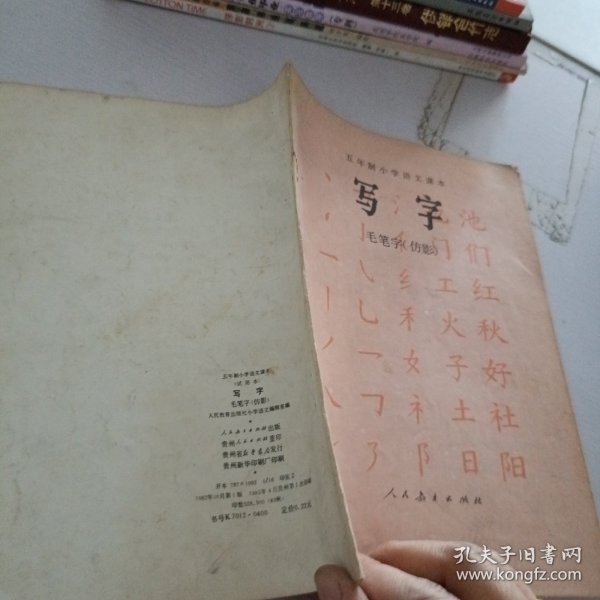 五年制小学语文课本
写字
毛笔字(仿影)
氵 也 池
亻 门 们
纟 工 红
禾 火 秋
女 子 好
礻 土 社
阝 日 阳
人民教育出版社
五年制小学语文课本
(试用本)
写字
毛笔字(仿影)
人民教育出版社小学语文编辑室编
人民教育出版社出版
贵州人民出版社重印
贵州省新华书店发行
贵州新华印刷厂印刷
开本 787×1092 1/16 印张2
书号K7012·0400 定价0.22元
BUTTON TIME
孔夫子旧书网
www.kongfz.com